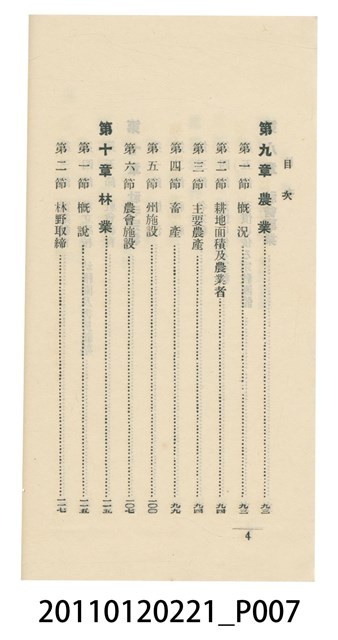 目次
第九章 農業 九三
第一節 概況 九三
第二節 耕地面積及農業者 九四
第三節 主要農產 九四
第四節 畜產 九九
第五節 州施設 一〇〇
第六節 農會施設 一〇七
第十章 林業 一一五
第一節 概說 一一五
第二節 林野取締 一一七
4
20110120221_P007